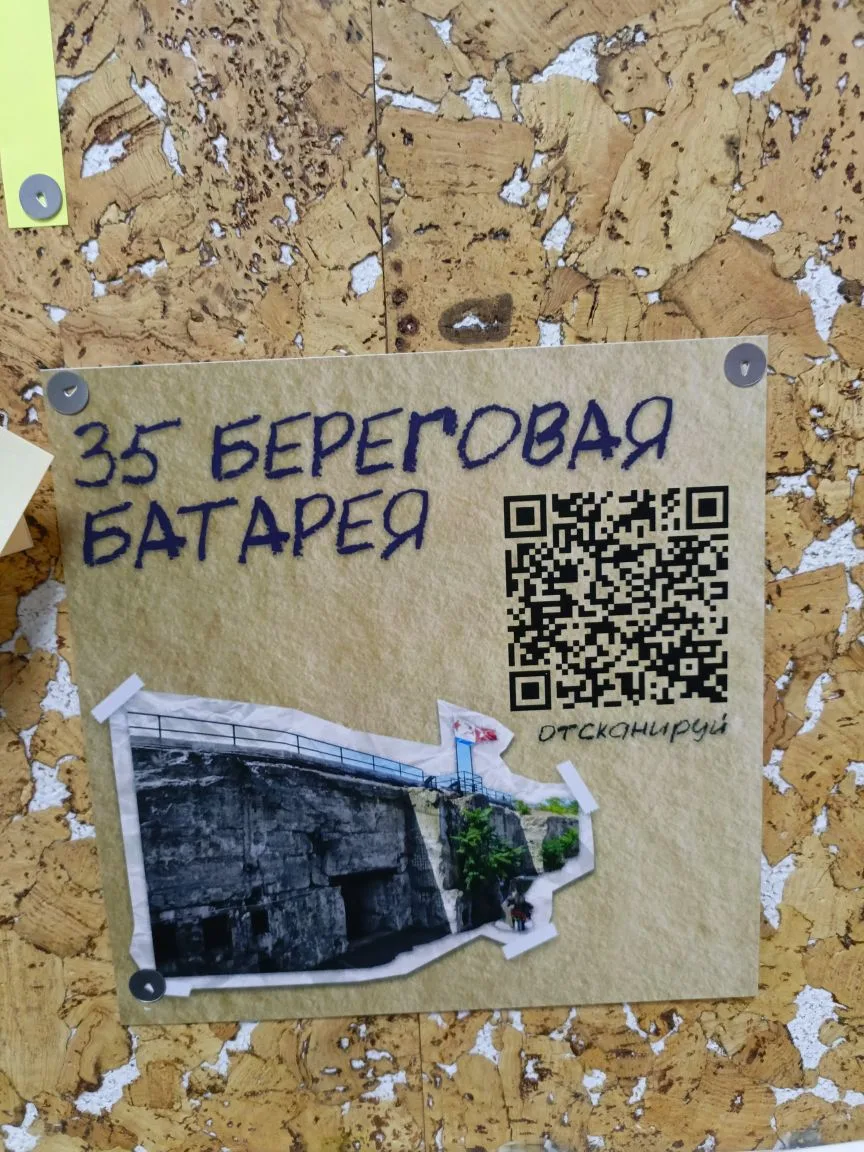 35 БЕРЕГОВАЯ
БАТАРЕЯ
отсканируй